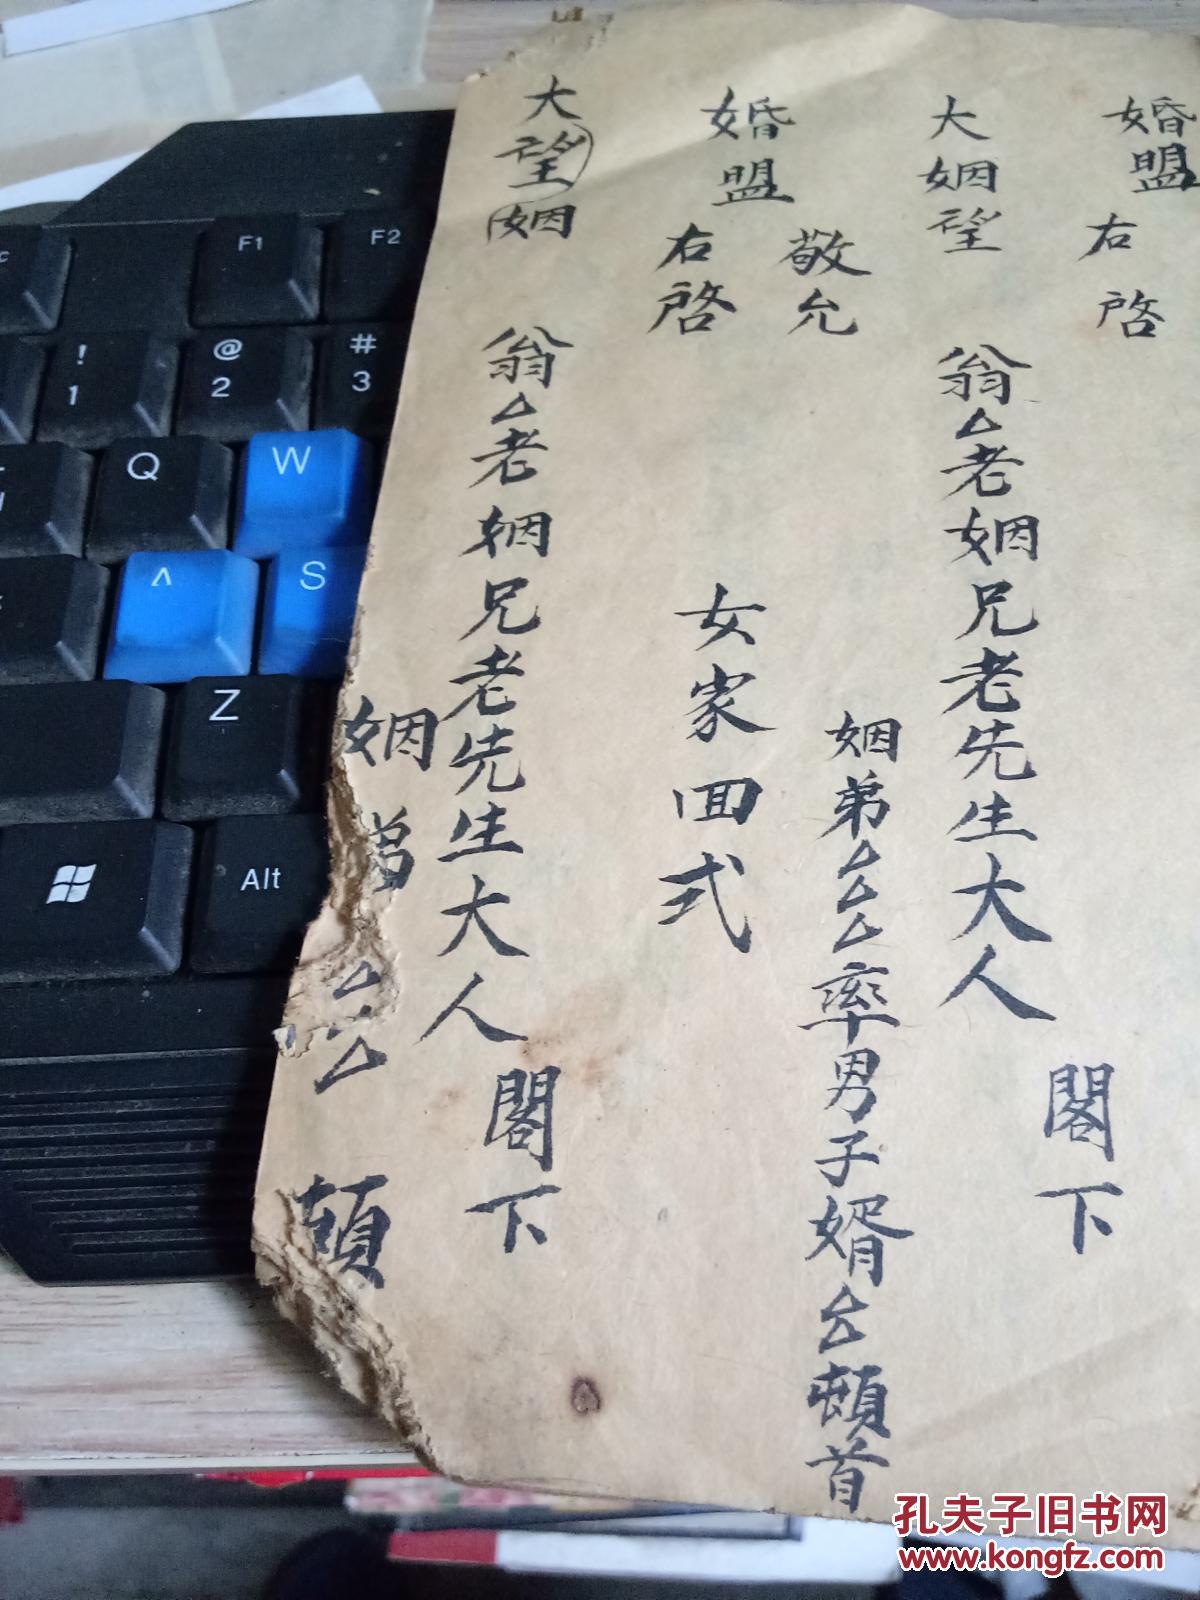 婚盟
右啓
大姻望
翁△老姻兄老先生大人
閣下
姻弟△△△率男子婿△△頓首
敬允
婚盟
右啓
女家回式
大望姻
翁△老姻兄老先生大人
閣下
姻弟△△△頓
F1
F2
!
1
@
2
#
3
Q
W
A
S
Z
Alt
孔夫子旧书网
www.kongfz.com